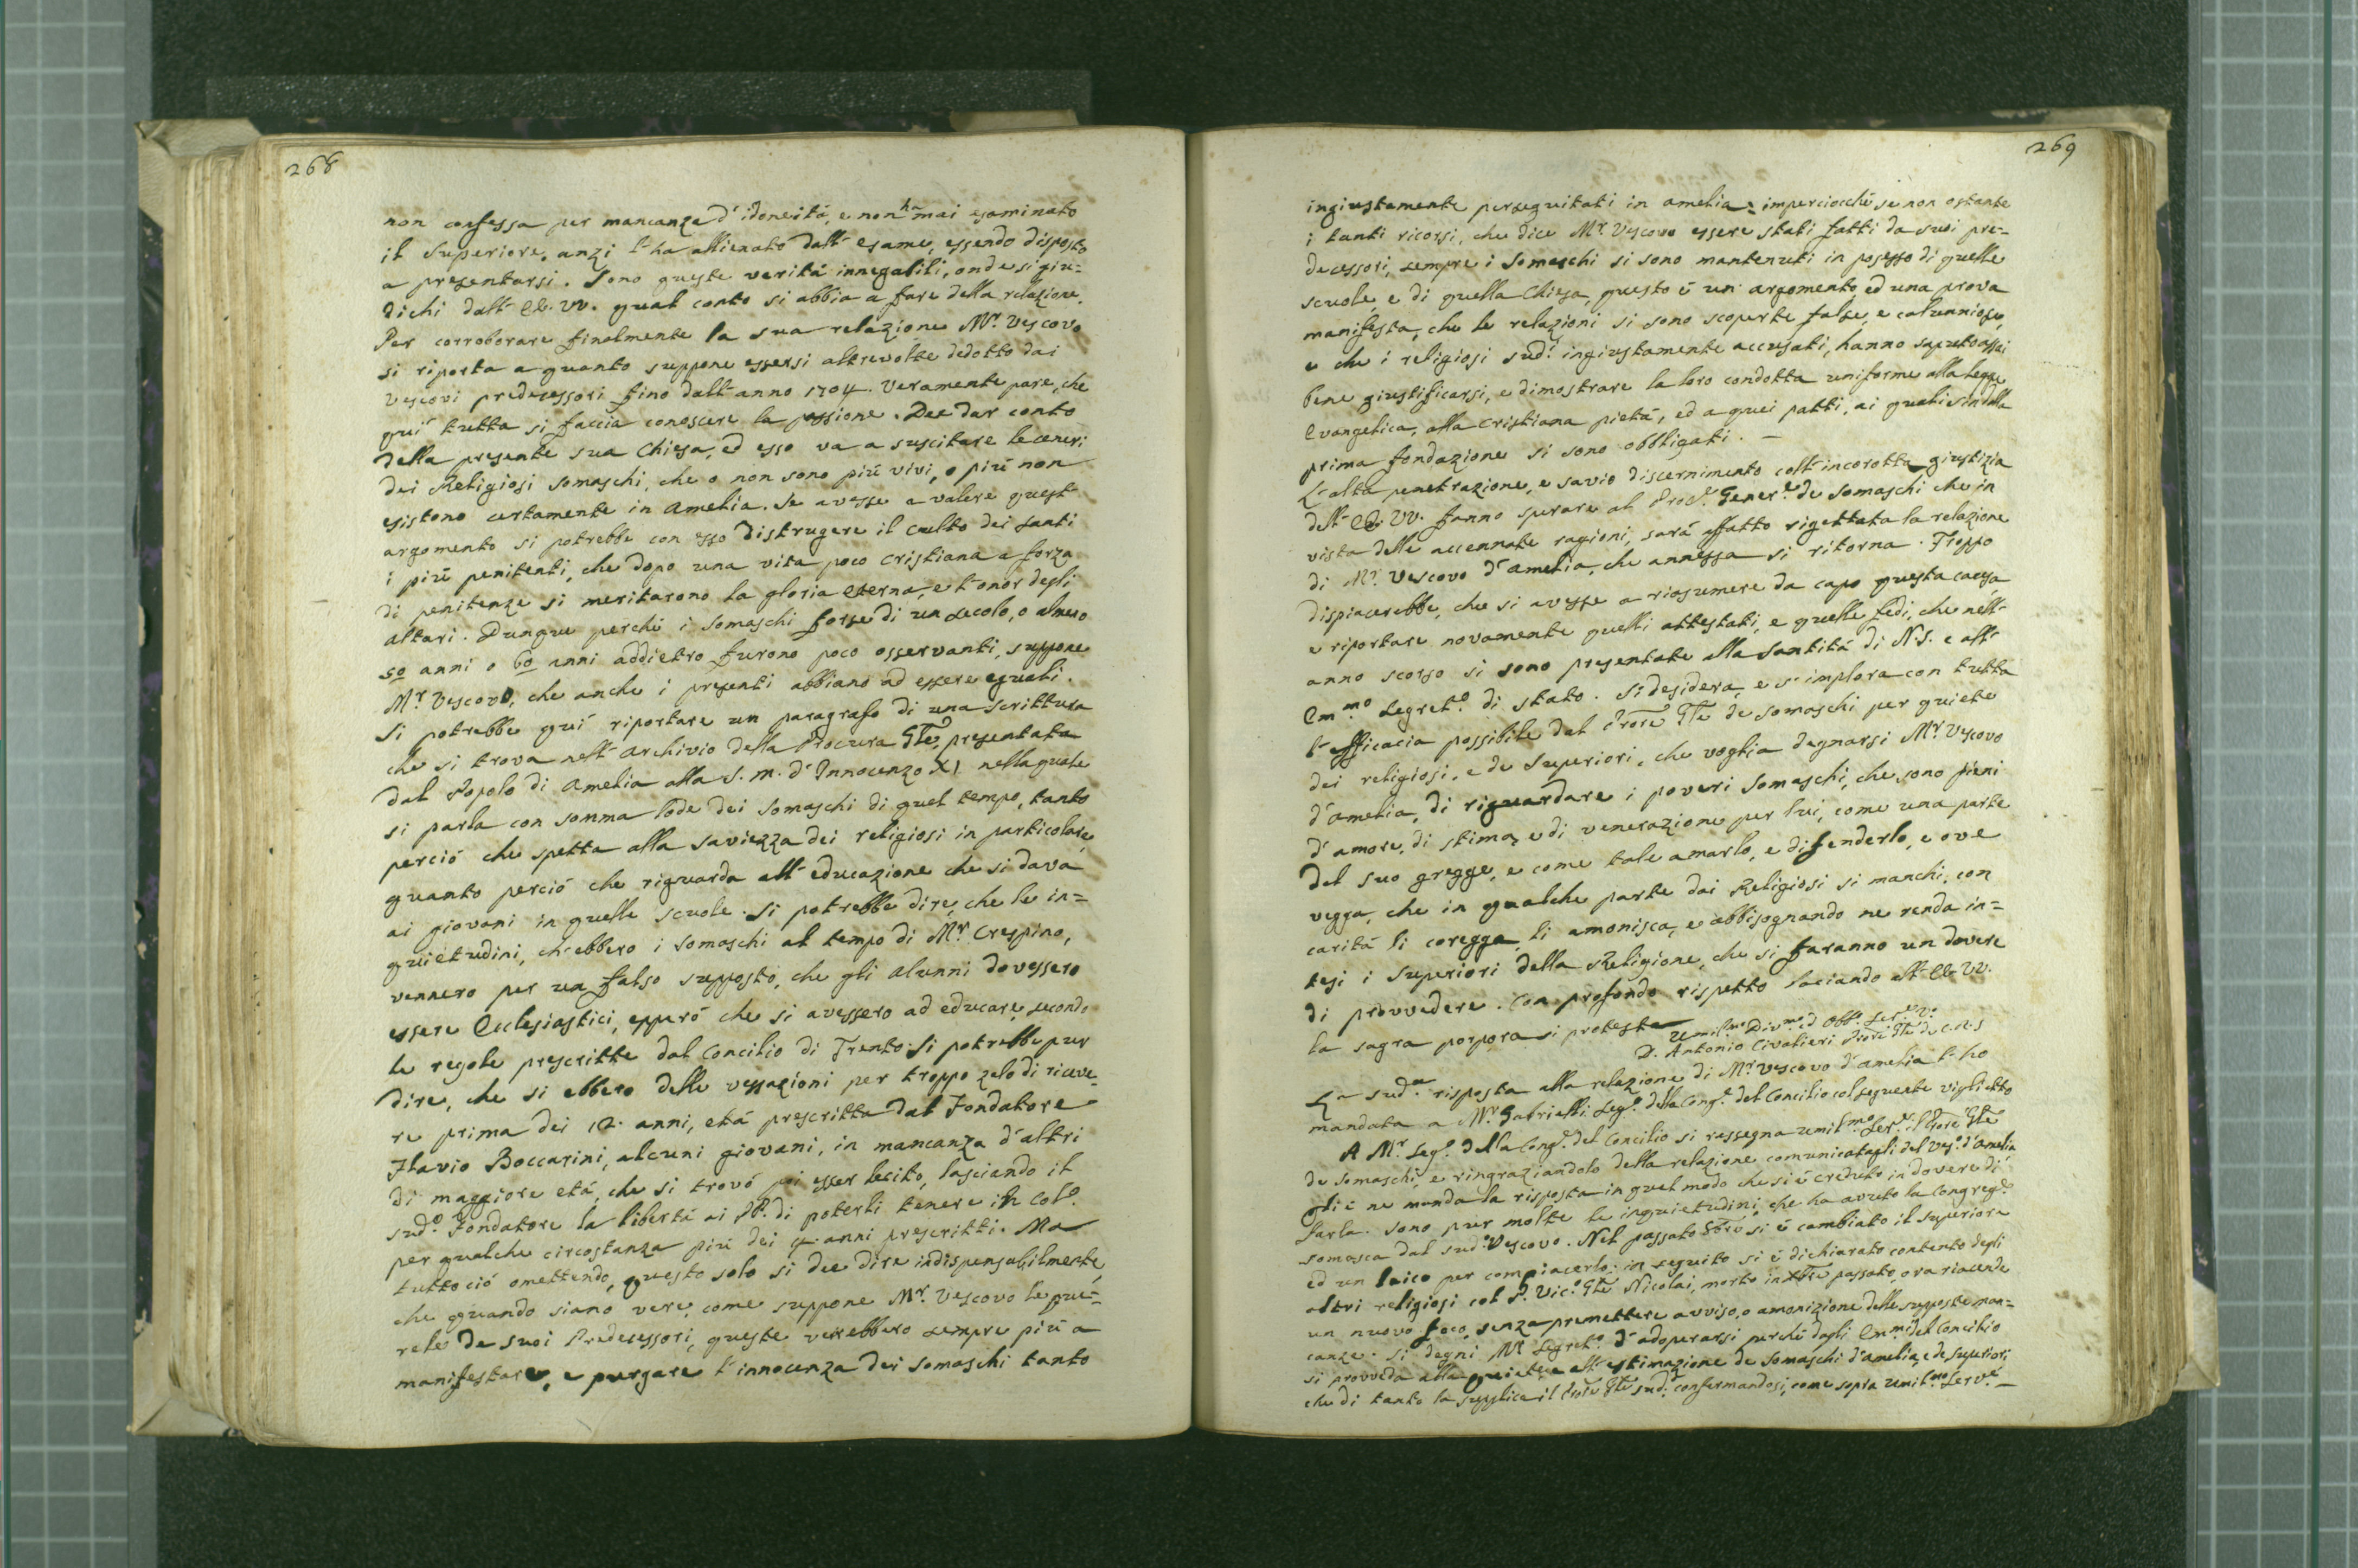 268
non confessa per mancanza d'idoneitá, e non ha mai esaminato
il Superiore, anzi l'ha allienato dall'esame, essendo disposto
a presentarsi. Sono queste veritá innegabili, onde si giu=
dichi dall'EE. VV. qual conto si abbia a fare della relazione.
Per corroborare finalmente la sua relazione Mr. Vescovo
si riporta a quanto suppone essersi altrevolte dedotto dai
Vescovi predecessori fino dall'anno 1704. Veramente pare, che
quí tutta si faccia conoscere la passione. Dee dar conto
della presente sua Chiesa, ed esso va a suscitare le ceneri
dei Religiosi Somaschi, che o non sono piú vivi, o piú non
esistono certamente in Amelia. Se avesse a valere quest'
argomento si potrebbe con esso distrugere il culto dei santi
i piú penitenti, che dopo una vita poco cristiana a forza
di penitenze si meritarono la gloria eterna, e l'onor degli
altari. Dunque perché i Somaschi forse di un secolo, o almeno
50 anni o 60 anni addietro furono poco osservanti, suppone
Mr. Vescovo, che anche i presenti abbiano ad essere eguali.
Si potrebbe quí riportare un paragrafo di una scrittura
che si trova nell'Archivio della Procura Gle, presentata
dal Popolo di Amelia alla S. M. d'Innocenzo XI nella quale
si parla con somma lode dei Somaschi di quel tempo, tanto
perció che spetta alla saviezza dei religiosi in particolare,
quanto perció che riguarda all'educazione che si dava
ai giovani in quelle scuole. Si potrebbe dire, che le in=
quietudini, ch'ebbero i Somaschi al tempo di Mr. Crespino,
vennero per un falso supposto, che gli Alunni dovessero
essere Ecclesiastici, epperó che si avessero ad educare secondo
le regole prescritte dal Concilio di Trento. Si potrebbe pur
dire, che si ebbero delle vessazioni per troppo zelo di riceve=
re prima dei 12. anni, etá prescritta dal Fondatore
Flavio Boccarini, alcuni giovani, in mancanza d'altri
di maggiore etá, che si trovó poi esser lecito, lasciando il
sudo. Fondatore la libertá ai PP. di poterli tenere in Colo.
per qualche circostanza piú dei anni prescritti. Ma
tuttoció omettendo, questo solo si dee dire indispensabilmente,
che quando siano vere, come suppone Mr. Vescovo le que=
rele de suoi Predecessori, queste verrebbero sempre piú a
manifestare, e purgare l'innocenza dei Somaschi tanto
269
ingiustamente perseguitati in Amelia: imperciocché se non ostante
i tanti ricorsi, che dice Mr. Vescovo essere stati fatti da suoi pre=
decessori, sempre i Somaschi si sono mantenuti in possesso di quelle
scuole e di quella Chiesa, questo é un argomento, ed una prova
manifesta, che le relazioni si sono scoperte false, e calunniose,
e che i religiosi sudi. ingiustamente accusati, hanno saputo assai
bene giustificarsi, e dimostrare la loro condotta uniforme alla legge
Evangelica, alla Cristiana pietá, ed a quei patti, ai quali sin dalla
prima fondazione si sono obbligati. –
L'alta penetrazione, e savio discernimento coll'incorotta giustizia
dell'EE. VV. fanno sperare al Proce. Genere. de Somaschi che in
vista delle accennate ragioni, sará affatto rigettata la relazione
di Mr. Vescovo d'Amelia, che annessa si ritorna. Troppo
dispiacerebbe, che si avesse a riasumere da capo questa causa,
e riportare novamente quelli attestati, e quelle fedi, che nell'
anno scorso si sono presentate alla Santitá di N.S. e all'
Emmo Segreto. di stato. Si desidera, e s'implora con tutta
l'efficacia possibile dal Prore Gle de Somaschi per quiete
dei religiosi, e de Superiori, che voglia degnarsi Mr. Vescovo
d'Amelia, di riguardare i poveri Somaschi, che sono pieni
d'amore, di stima, e di venerazione per lui, come una parte
del suo gregge, e come tale amarlo, e difenderlo, e ove
vegga, che in qualche parte dai Religiosi si manchi, con
caritá li coregga, li amonisca, e abbisognando ne renda in=
tesi i Superiori della Religione, che si faranno un dovere
di provvedere. Con profondo rispetto baciando all'EE. VV.
la sagra porpora si protesta
Umilmo Divmo ed Obbo. Serve. Vo.
D. Antonio Civalieri Prore Gle de C.R.S
La suda. risposta alla relazione di Mr. Vescovo d'Amelia l'ho
mandata a Mr. Gabrielli Sego. della Conge. del Concilio col seguente viglietto
A Mr. Sego. della Conge. del Concilio si rassegna umilmo. Serve. il Prore Gle
de Somaschi, e ringraziandolo della relazione comunicatagli del Veso. d'Amelia
gliene manda la risposta in quel modo che si é creduto in dovere di
farla. Sono pur molte le inquietudini, che ha avuto la Congrege.
Somasca dal sudo. Vescovo. Nel passato si é cambiato il Superiore
ed un laico per compiacerlo; in seguito si é dichiarato contento degli
altri religiosi col P. Vico. Gle Nicolai, morto in passato, ora riaccende
un nuovo foco, senza premettere avviso, o amonizione delle supposte man=
canze. Si degni Mr. Segreto. d'adoperarsi perché dagli Emmi del Concilio
si provveda alla quiete, e all'estimazione de Somaschi d'Amelia, e de Superiori
che di tanto la supplica il Prore Gle sudo. confermandosi, come sopra umilmo Serve –